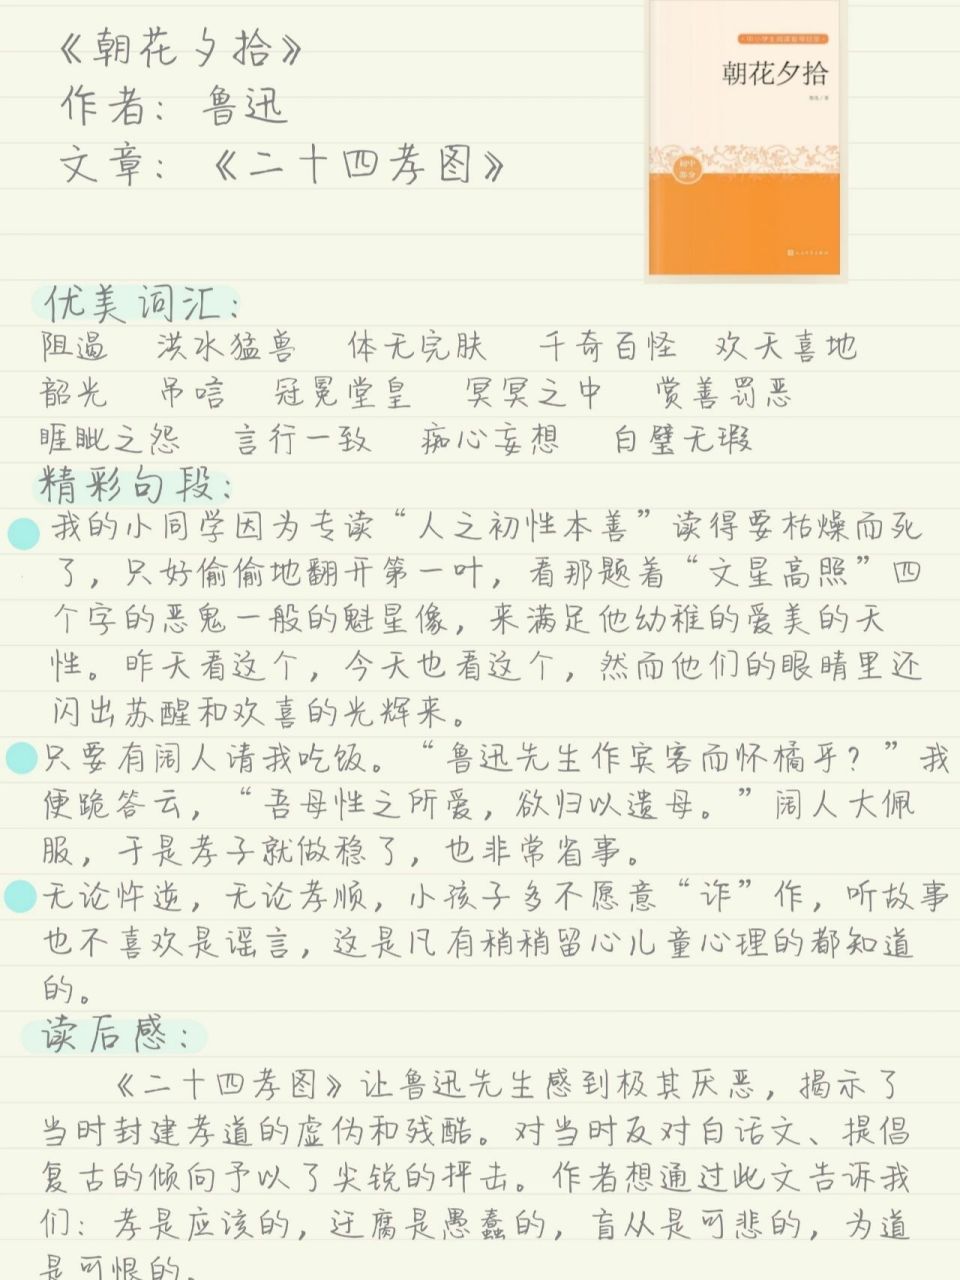 《朝花夕拾》
作者：鲁迅
文章：《二十四孝图》
中小学生阅读指导目录
朝花夕拾
初中
部分
优美词汇：
阻遏 洪水猛兽 体无完肤 千奇百怪 欢天喜地
韶光 吊唁 冠冕堂皇 冥冥之中 赏善罚恶
睚眦之怨 言行一致 痴心妄想 白璧无瑕
精彩句段：
我的小同学因为专读“人之初性本善”读得要枯燥而死
了，只好偷偷地翻开第一叶，看那题着“文星高照”四
个字的恶鬼一般的魁星像，来满足他幼稚的爱美的天
性。昨天看这个，今天也看这个，然而他们的眼睛里还
闪出苏醒和欢喜的光辉来。
只要有阔人请我吃饭。“鲁迅先生作宾客而怀橘乎？”我
便跪答云，“吾母性之所爱，欲归以遗母。”阔人大佩
服，于是孝子就做稳了，也非常省事。
无论忤逆，无论孝顺，小孩子多不愿意“诈”作，听故事
也不喜欢是谣言，这是凡有稍稍留心儿童心理的都知道
的。
读后感：
《二十四孝图》让鲁迅先生感到极其厌恶，揭示了
当时封建孝道的虚伪和残酷。对当时反对白话文、提倡
复古的倾向予以了尖锐的抨击。作者想通过此文告诉我
们：孝是应该的，迂腐是愚蠢的，盲从是可悲的，为道
是可恨的。